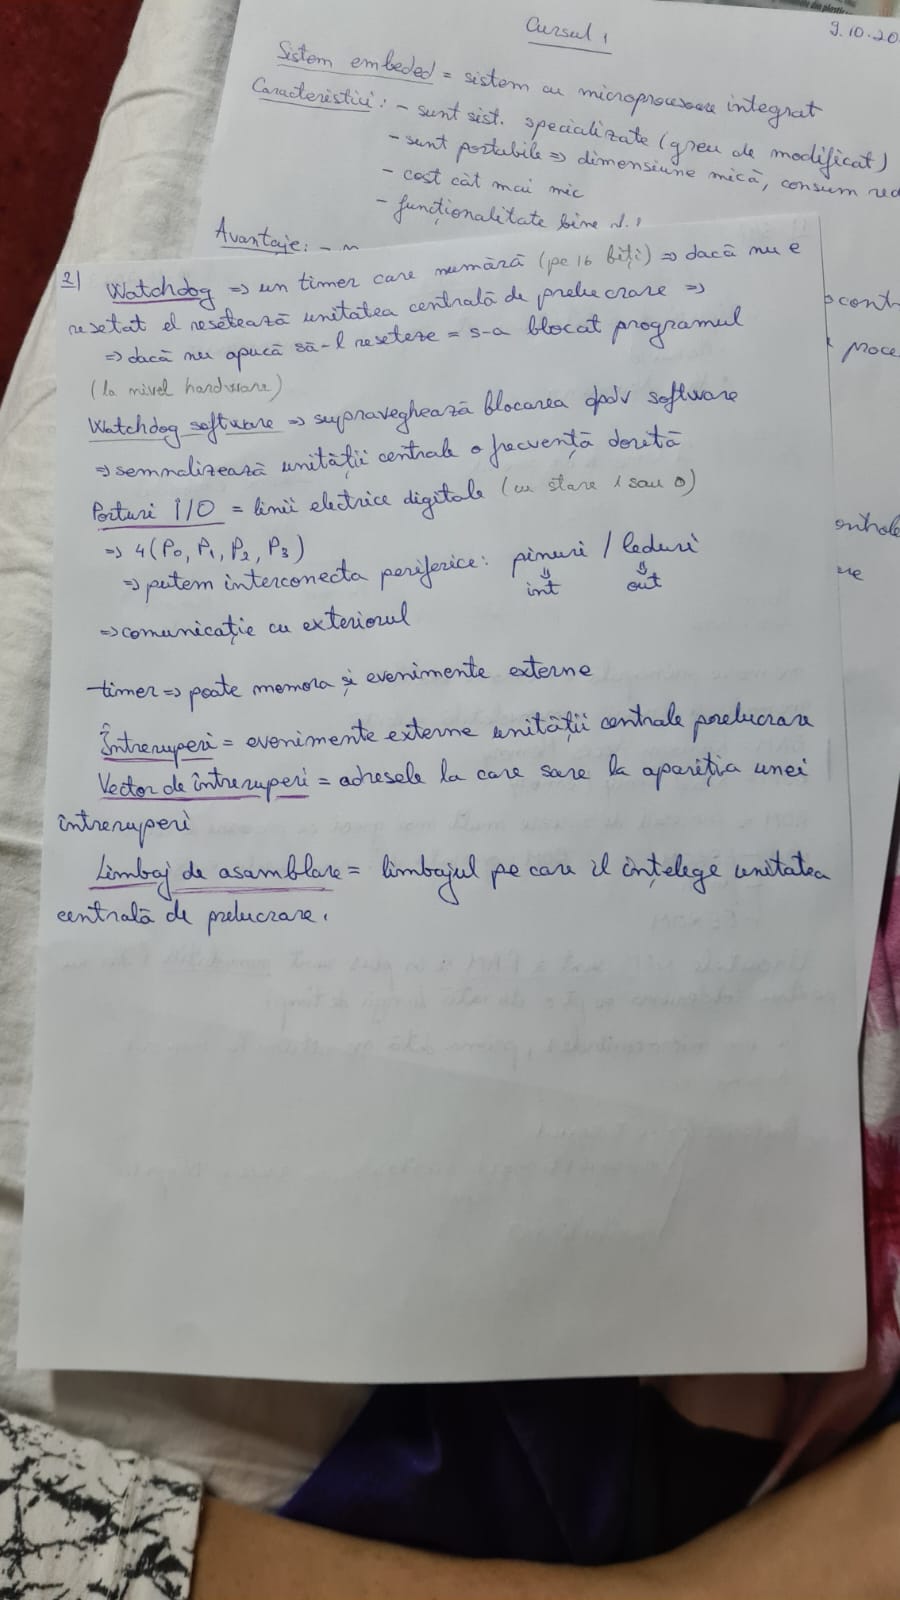 Cursul 1
9.10.20
Sistem embeded = sistem cu microprocesoare integrat
Caracteristici: - sunt sist. specializate (greu de modificat)
- sunt portabile => dimensiune mică, consum red
- cost cât mai mic
- funcționalitate bine
Avantaje: -
2) Watchdog => un timer care numără (pe 16 biți) => dacă nu e
resetat el resetează unitatea centrală de prelucrare =>
=> dacă nu apucă să-l reseteze = s-a blocat programul
(la nivel hardware)
Watchdog software => supraveghează blocarea dpdv software
=> semnalizează unității centrale o frecvență dorită
Porturi I/O = linii electrice digitale (cu stare 1 sau 0)
=> 4 (P0, P1, P2, P3)
=> putem interconecta periferice: pinuri / leduri
int out
=> comunicație cu exteriorul
timer => poate memora și evenimente externe
Întreruperi = evenimente externe unității centrale prelucrare
Vector de întreruperi = adresele la care sare la apariția unei
întreruperi
Limbaj de asamblare = limbajul pe care îl înțelege unitatea
centrală de prelucrare.
cont
proce